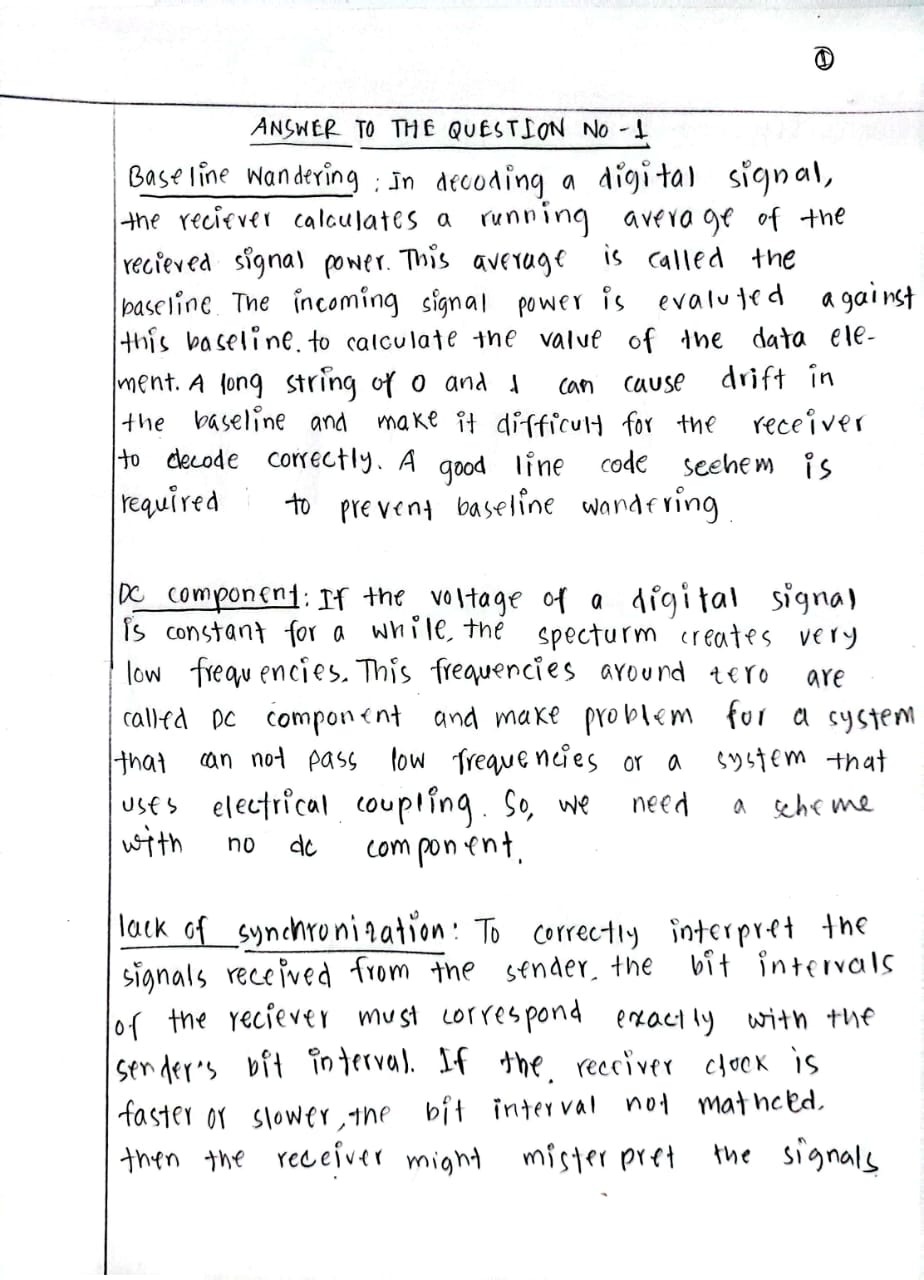 ①
ANSWER TO THE QUESTION No - 1
Baseline Wandering : In decoding a digital signal,
the reciever calculates a running average of the
recieved signal power. This average is called the
baseline. The incoming signal power is evaluted against
this baseline. to calculate the value of the data ele-
ment. A long string of 0 and 1 can cause drift in
the baseline and make it difficult for the receiver
to decode correctly. A good line code seehem is
required to prevent baseline wandering.
DC component: If the voltage of a digital signal
is constant for a while, the specturm creates very
low frequencies. This frequencies around zero are
called DC component and make problem for a system
that can not pass low frequencies or a system that
uses electrical coupling. So, we need a scheme
with no dc component.
lack of synchronization: To correctly interpret the
signals received from the sender, the bit intervals
of the reciever must correspond exactly with the
sender's bit interval. If the receiver clock is
faster or slower, the bit interval not mathced.
then the receiver might misterpret the signals